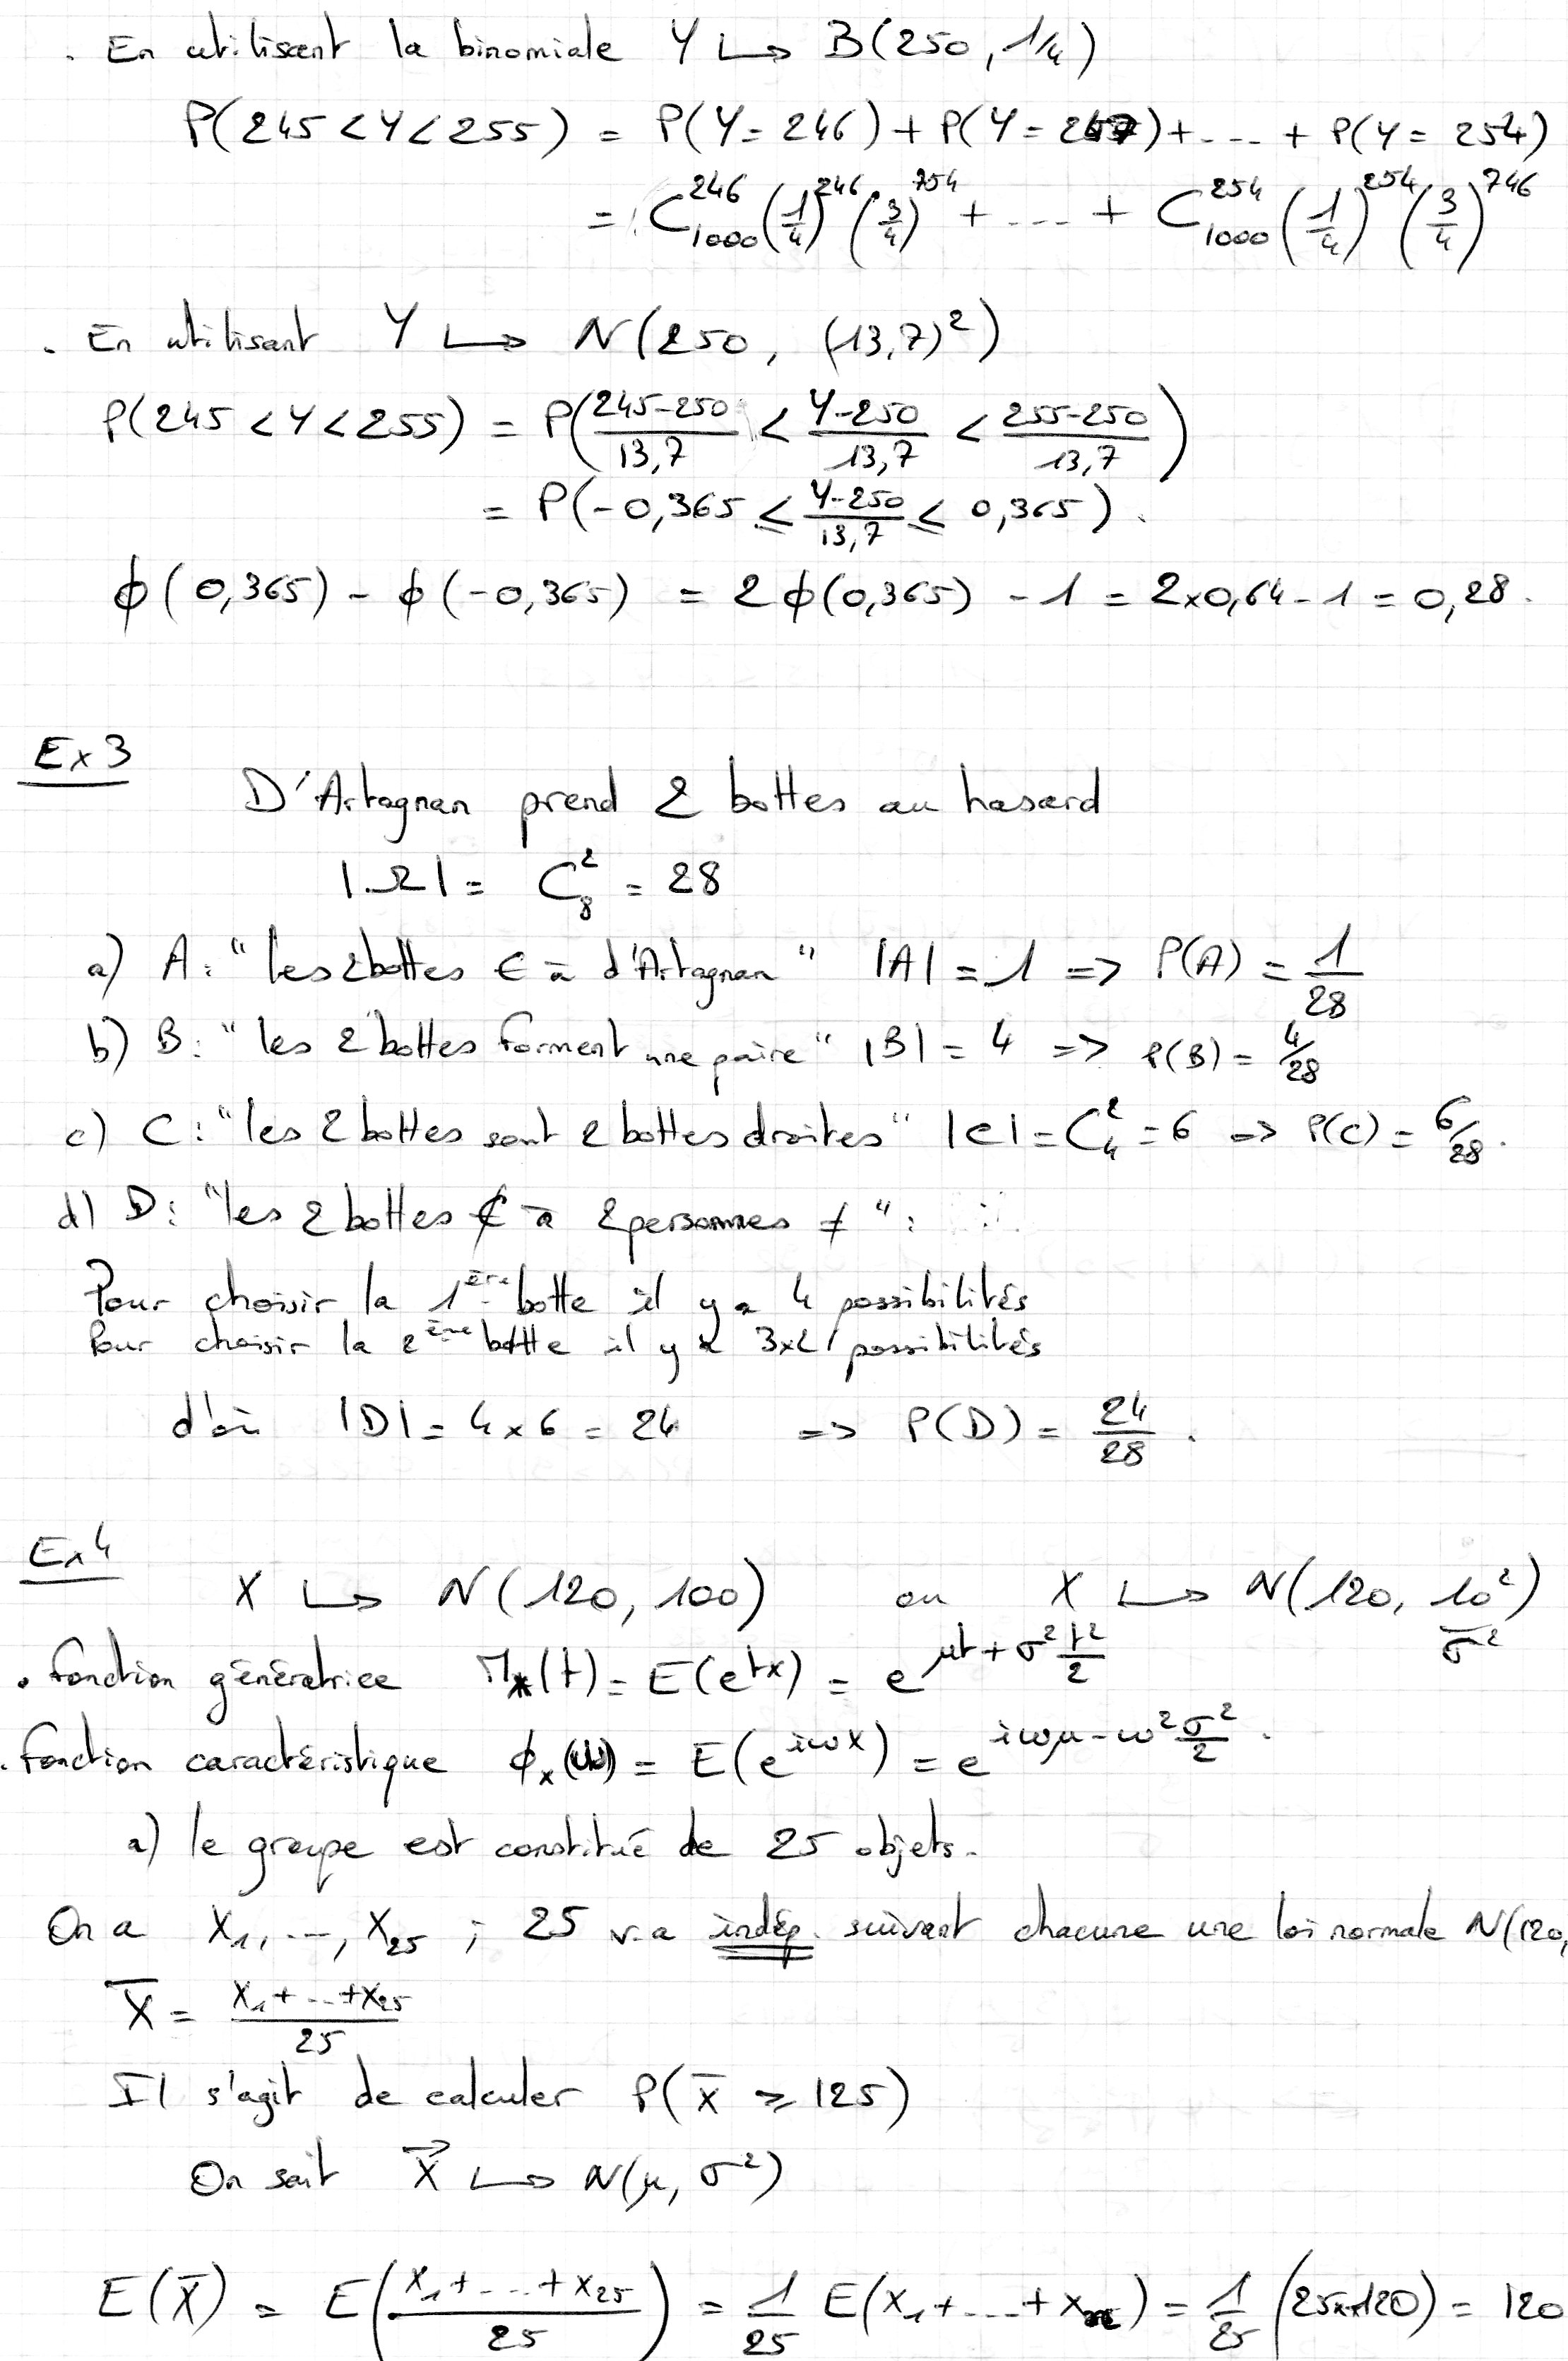 . En utilisant la binomiale Y ↪ B(250, 1/4)
P(245 < Y < 255) = P(Y = 246) + P(Y = 247) + --- + P(Y = 254)
= C_1000^246 (1/4)^246 (3/4)^754 + --- + C_1000^254 (1/4)^254 (3/4)^746
. En utilisant Y ↪ N(250, (13,7)²)
P(245 < Y < 255) = P((245-250)/13,7 < (Y-250)/13,7 < (255-250)/13,7)
= P(-0,365 ≤ (Y-250)/13,7 ≤ 0,365).
ϕ(0,365) - ϕ(-0,365) = 2ϕ(0,365) - 1 = 2×0,64 - 1 = 0,28.
Ex 3
D'Artagnan prend 2 bottes au hasard
|Ω| = C_8^2 = 28
a) A : "les 2 bottes ∈ à d'Artagnan" |A| = 1 => P(A) = 1/28
b) B : "les 2 bottes forment une paire" |B| = 4 => P(B) = 4/28
c) C : "les 2 bottes sont 2 bottes droites" |C| = C_4^2 = 6 => P(C) = 6/28.
d) D : "les 2 bottes ∉ à 2 personnes ≠" :
Pour choisir la 1ère botte il y a 4 possibilités
Pour choisir la 2ème botte il y a 3×2 possibilités
d'où |D| = 4 × 6 = 24 => P(D) = 24/28.
Ex 4
X ↪ N(120, 100) ou X ↪ N(120, 10²)
σ²
. Fonction génératrice M_X(t) = E(e^{tx}) = e^{μt + σ² t²/2}
. Fonction caractéristique ϕ_X(ω) = E(e^{iωX}) = e^{iωμ - ω² σ²/2}.
a) le groupe est constitué de 25 objets.
On a X₁, --, X₂₅ ; 25 v.a indép. suivant chacune une loi normale N(120,
X̄ = (X₁ + -- + X₂₅)/25
Il s'agit de calculer P(X̄ ≥ 125)
On sait X̄ ↪ N(μ, σ²)
E(X̄) = E((X₁ + --- + X₂₅)/25) = 1/25 E(X₁ + --- + X₂₅) = 1/25 (25×120) = 120